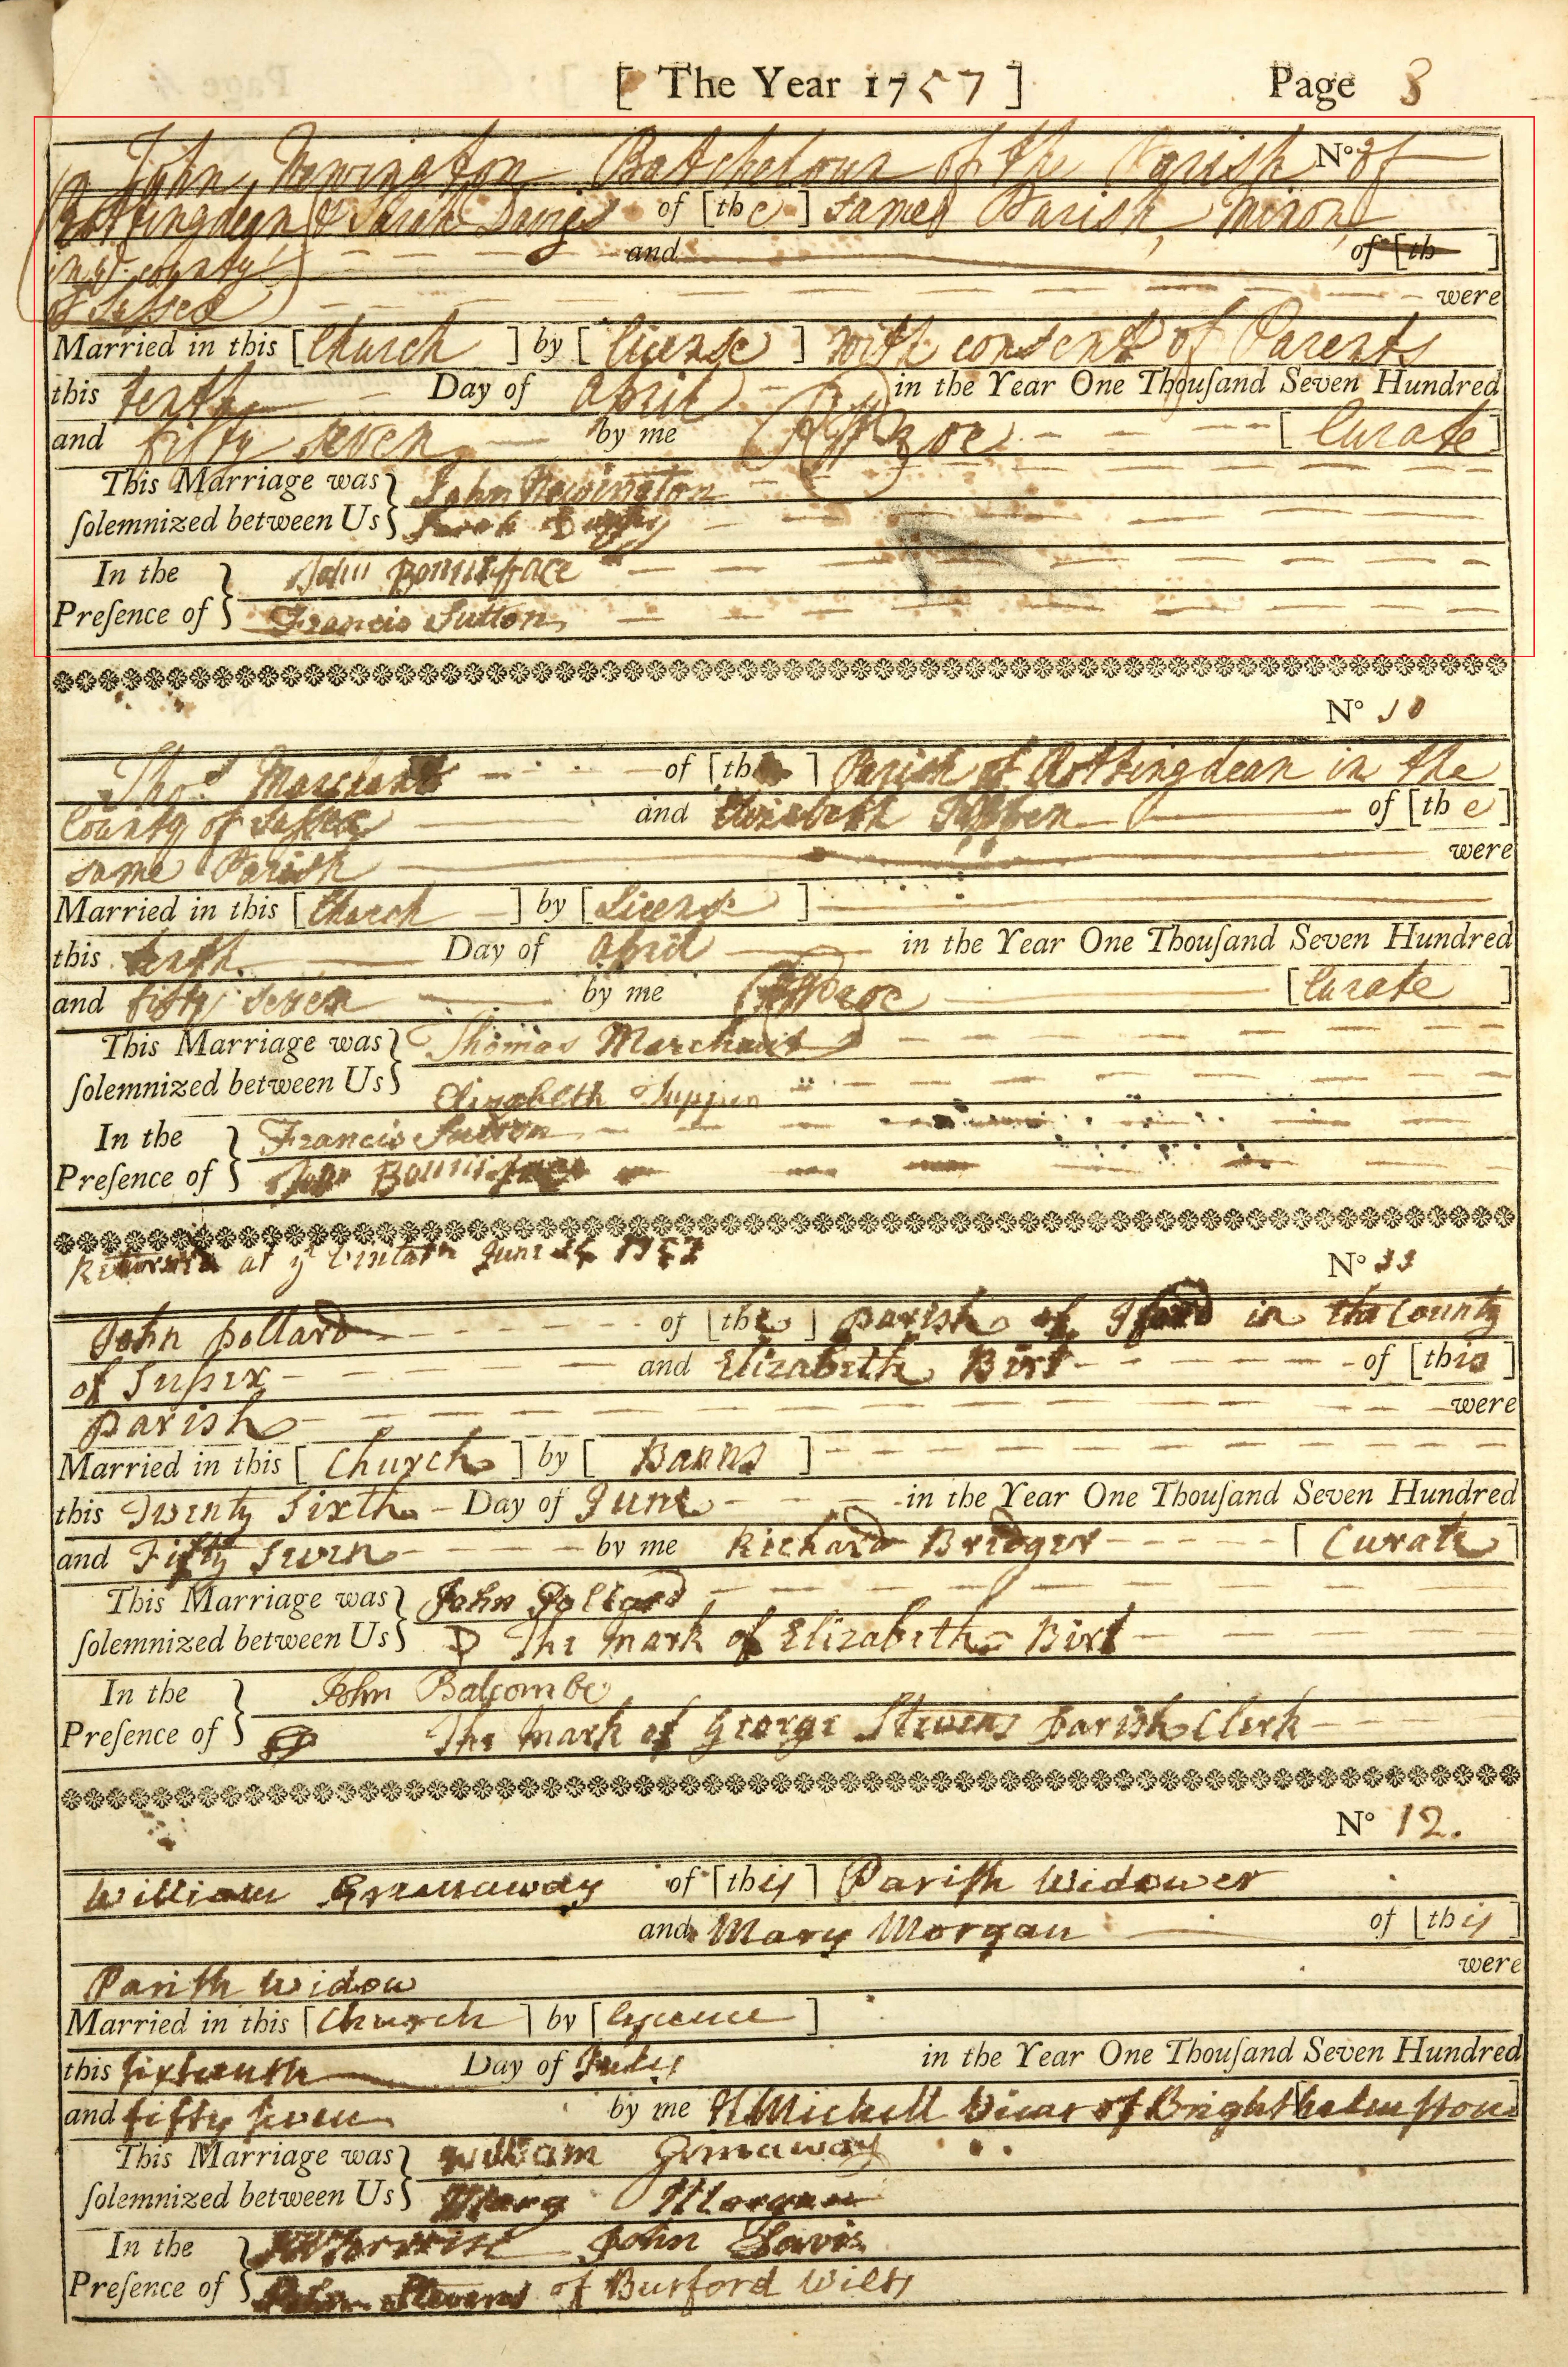 [ The Year 1757 ] Page 3
John Newington Batchelour of the Parish No 9 of
Rottingdean & Sarah Davis of [the] same Parish, Minor,
in ye. county and of [th ]
of Sussex were
Married in this [Church] by [License] with consent of Parents
this tenth Day of April in the Year One Thouſand Seven Hundred
and fifty seven by me [Curate]
This Marriage was John Newington
ſolemnized between Us Sarah
In the John Bonniface
Preſence of Francis Sutton
No 10
Thos. Marchant of [the] Parish of Rottingdean in the
County of Sussex and Elizabeth Tuppen of [the]
same Parish were
Married in this [Church] by [License]
this tenth Day of April in the Year One Thouſand Seven Hundred
and fifty seven by me [Curate]
This Marriage was Thomas Marchant
ſolemnized between Us Elizabeth Tuppen
In the Francis Sutton
Preſence of John Bonniface
Return'd at ye Visitatn June 24 1757
No 11
John Pollard of [the] parish of Iford in the County
of Sussex and Elizabeth Birt of [this]
parish were
Married in this [Church] by [Banns]
this Twenty Sixth Day of June in the Year One Thouſand Seven Hundred
and Fifty Seven by me Richard Bridger [Curate]
This Marriage was John Pollard
ſolemnized between Us The mark of Elizabeth Birt
In the John Balcombe
Preſence of The mark of George Stevens parish Clerk
No 12.
William Grenaway of [this] Pariſh Widower
and Mary Morgan of [this]
Pariſh Widow were
Married in this [Church] by [Lycence]
this ſixteenth Day of July in the Year One Thouſand Seven Hundred
and fifty ſeven by me H Michell Vicar of Brighthelmſtone
This Marriage was William Grenaway
ſolemnized between Us Mary Morgan
In the John Davis
Preſence of John Stevens of Burford Wilts